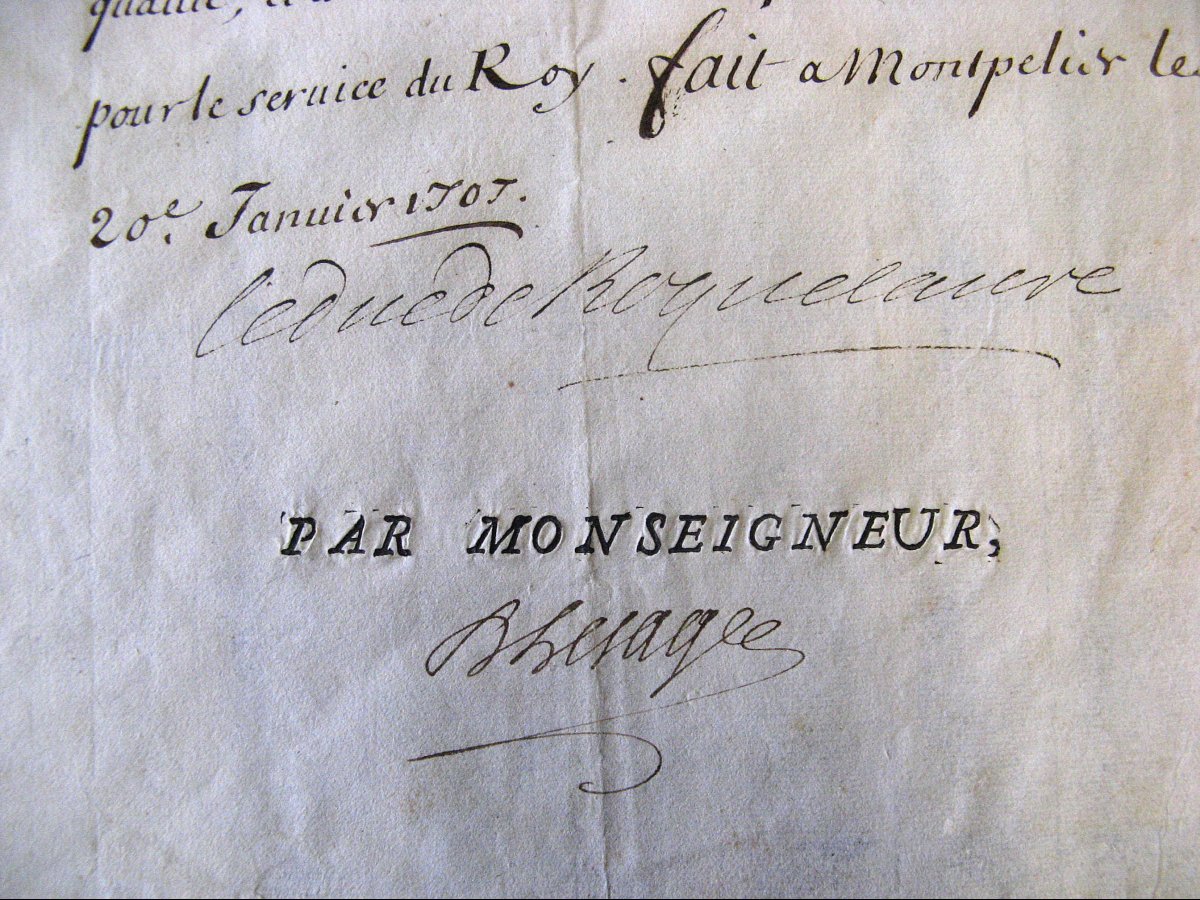 qualité,
pour le seruice du Roy. fait a Montpelier le
20e. Januier 1707.
le duc de Roquelaure
PAR MONSEIGNEUR,